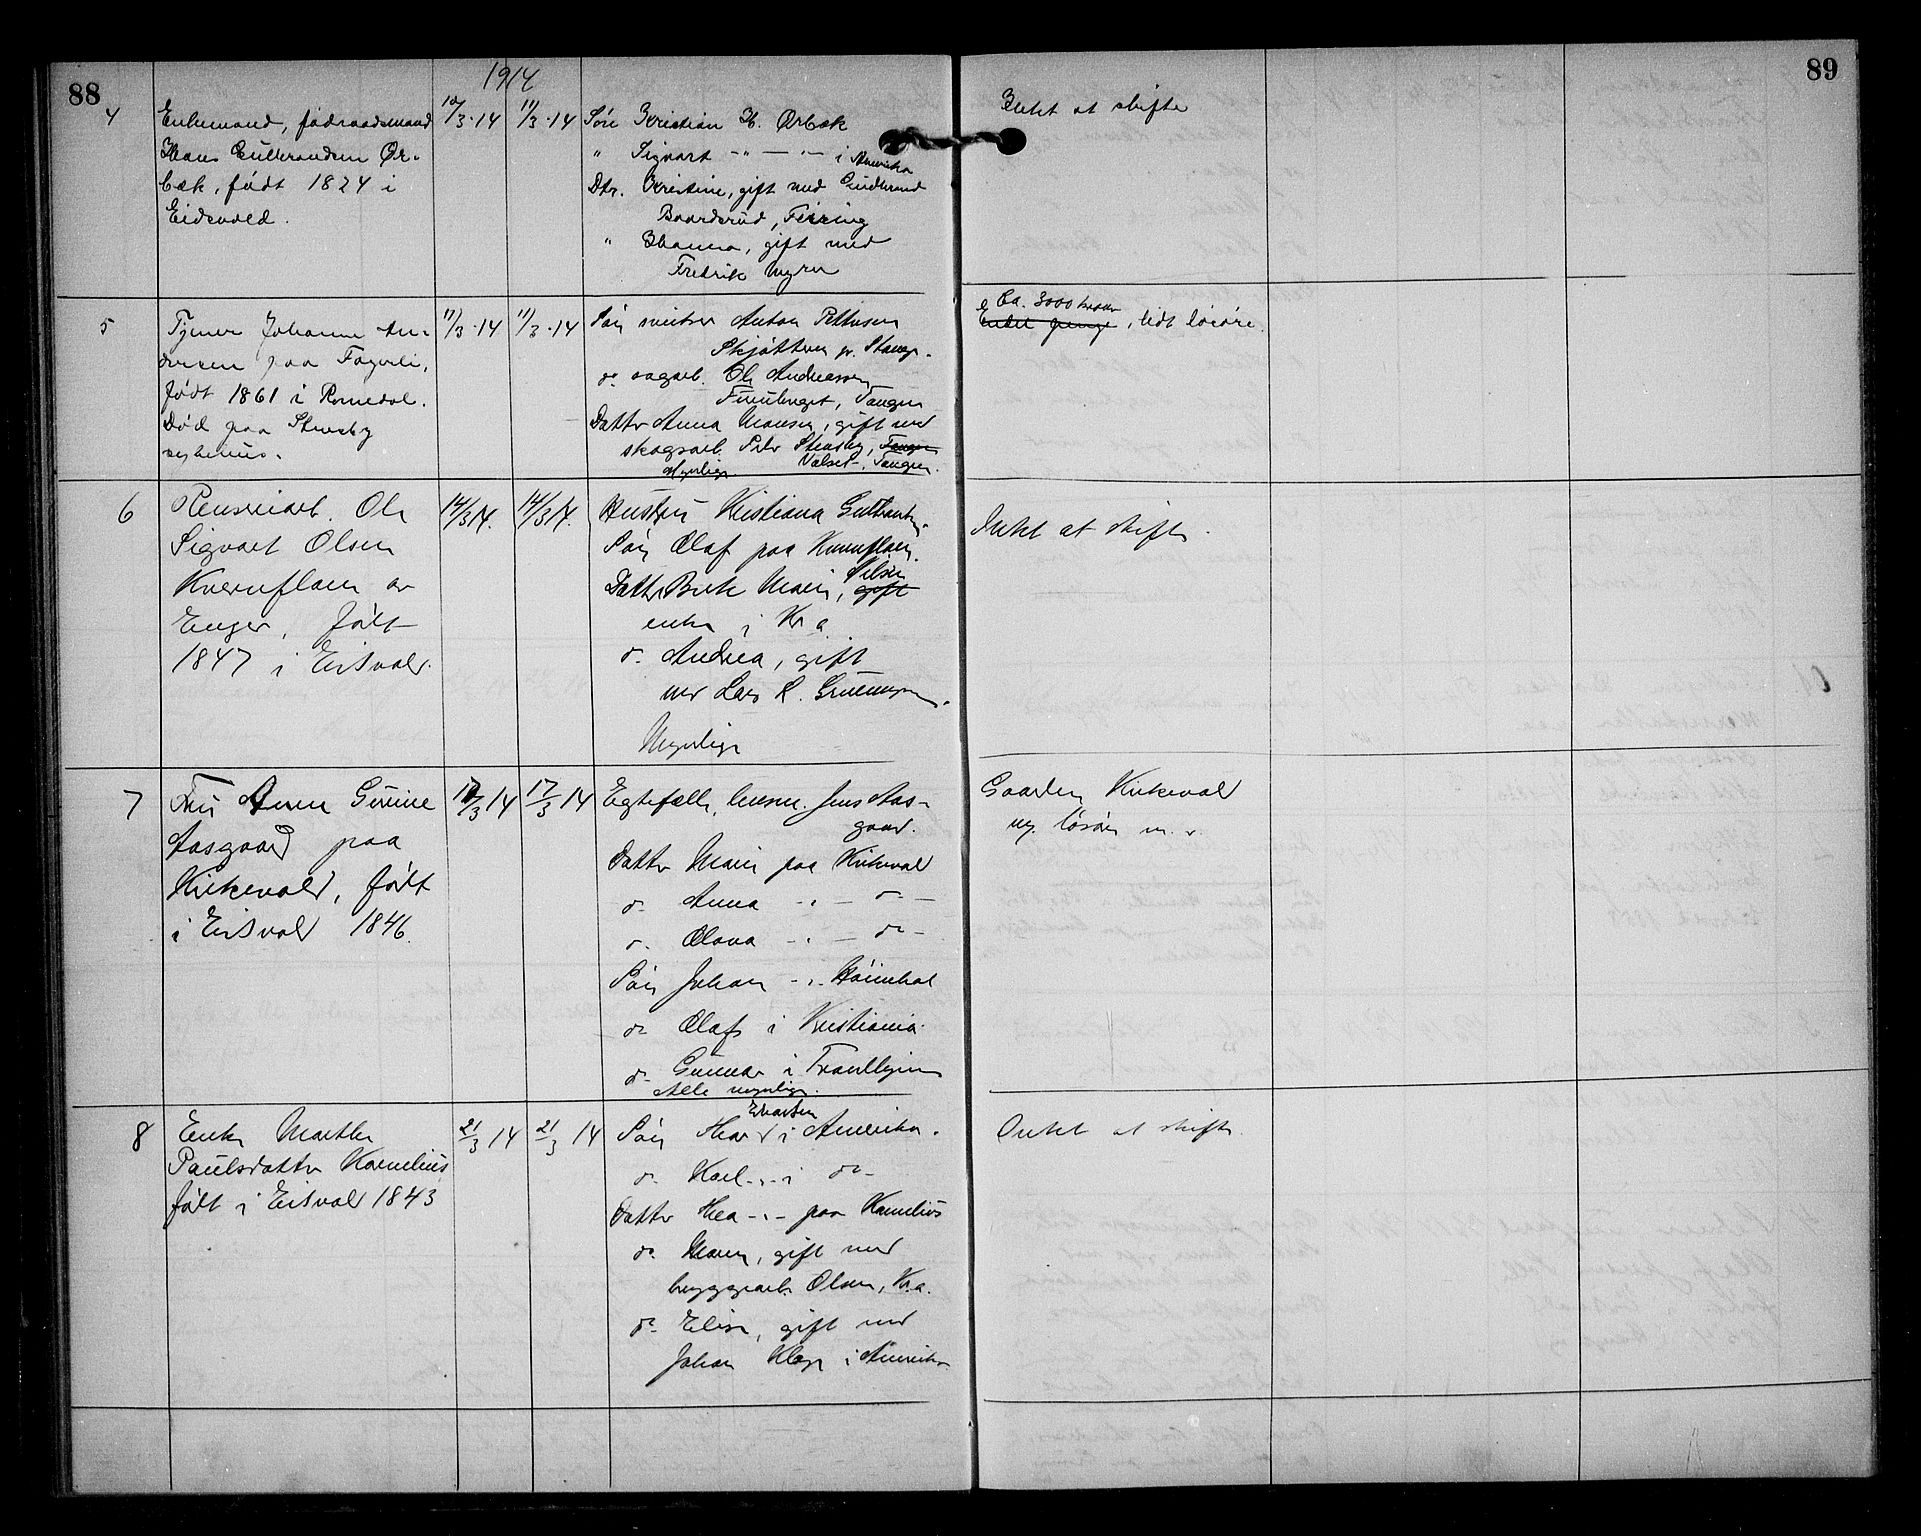 88
1914
89
4
Enkemand, födraadsmand
Hans Gulbrandsen Ør-
bæk, födt 1824 i
Eidsvold.
10/3-14
11/3-14
Søn Kristian H. Ørbæk
" Sigvart -"- — -"- i Amerika
Dtr. Kristine, gift med Gudbrand
Baardsrud, Feiring
" Hanna, gift med
Fredrik Myrer
Intet at skifte
5
Johanne An-
dersen paa Fagerli,
födt 1861 i Romedal.
Död paa Stensby
sykehus.
11/3-14
11/3-14
Søn Anton Pettersen
Skjötteren pr. Stange.
do sagarb. Ole Andreassen
Tangen
Datter Anna Monsen, gift med
skogsarb. Peder Stensby, Tangen
Valset, Tangen.
Myndige.
Ca. 3000 kroner
Endel penge, lidt lösöre.
6
Ole
Sigvart Olsen
Kvernflaen av
Enger, födt
1847 i Eidsvold.
14/3 14.
14/3 14.
Hustru Kristiana Gulbrands.
Søn Olaf paa Kvernflaen.
Datter Berte Marie, gift Nilsen
enke i Kr a
do. Andrea, gift
med Lars K.
Myndige
Intet at skifte.
7
Fru Anne Gurine
Aasgaard paa
Kirkevold, födt
i Eidsvold 1846.
17/3 14
17/3 14
Egtefælle, Jens Aas-
gaard.
Datter Marie paa Kirkevold
do. Anna -"- — do —
do. Olava -"- — do —
Søn Johan -"-
do Olaf i Kristiania.
do. Gunnar i Trondhjem
Alle myndige.
Gaarden Kirkevold
og lösöre m. v.
8
Enke Marthe
Paulsdatter Kornelius
födt i Eidsvold 1843
21/3 14
21/3 14
Evensen
Søn i Amerika.
do. Karl -"- i do -
Datter Thea -"- paa Kornelius
do. Maren, gift med
bryggearb. Olsen, Kr.a.
do. Elise, gift med
Johan i Amerika
Intet at skifte.